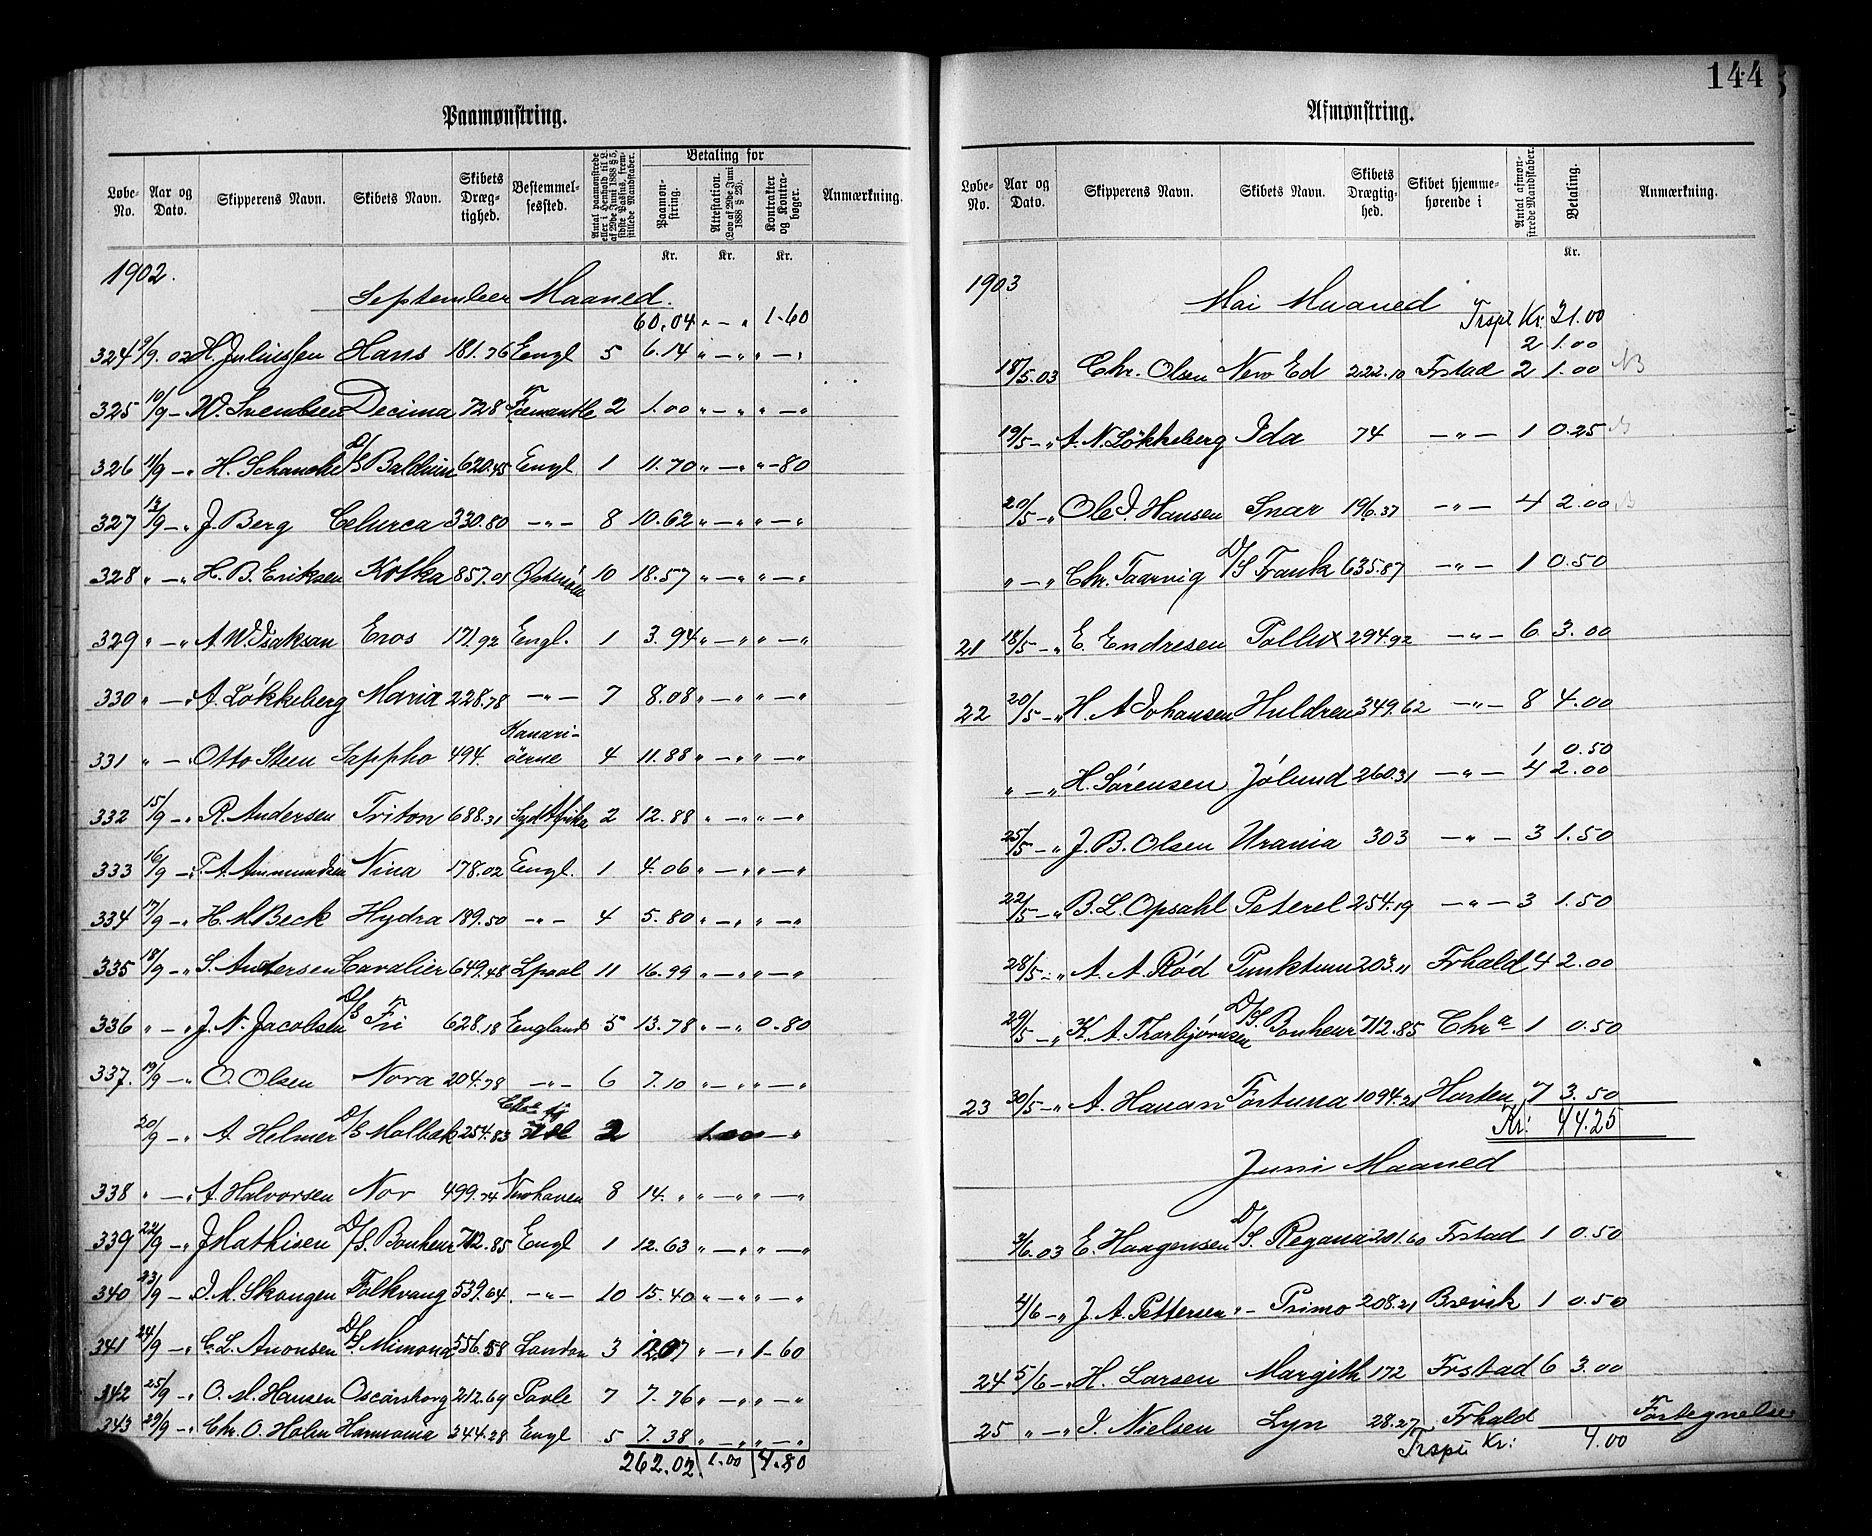 144
Paamønstring.
Løbe-No. Aar og Dato. Skipperens Navn. Skibets Navn. Skibets Dræg-tighed. Bestemmel-sessted. Antal paamønstrede eller i Henhold til L. af 29de Juni 1888 § 5, sidste Passus, frem-stillede Mandskaber. Betaling for Paamøn-string. Attestation. (Lov af 29de Juni 1888 § 23). Kontrakter og Kontra-bøger. Anmærkning.
Kr. Kr. Kr.
1902.
September Maaned.
60.04 „ — „ 1-60
324 9/9. 02 H. Juliussen Hans 181.76 Engl 5 6.14 „ — „ „ — „
325 10/9 — „ W. Svendsen Decima 728 Fremantle 2 1.00 „ — „ „ — „
326 11/9 — „ H. Schanche D/S Baldwin 620.45 Engl 1 11.70 „ — „ „ -80
327 12/9 — „ J. Berg Celurca 330.80 — „ — 8 10.62 „ — „ „ — „
328 „ — „ H. B. Eriksen Kotka 857.05 10 18.57 „ — „ „ — „
329 „ — „ A. W. Isaksan Eros 171.92 Engl. 1 3.94 „ — „ „ — „
330 „ — „ A. Løkkeberg Maria 228.78 — „ — 7 8.08 „ — „ „ — „
331 „ — „ Otto Steen Sappho 494. Kanari-öerne 4 11.88 „ — „ „ — „
332 15/9 — „ R. Andersen Triton 688.31 SydAfrika 2 12.88 „ — „ „ — „
333 16/9 — „ T. A. Ammundsen Nina 178.02 Engl. 1 4.06 „ — „ „ — „
334 17/9 — „ H. M Beck Hydra 189.50 — „ — 4 5.80 „ — „ „ — „
335 18/9 — „ S. Andersen Cavalier 649.48 Lpool 11 16.99 „ — „ „ — „
336 „ — „ J. N. Jacobsen D/S Fri 628.18 England 5 13.78 „ — „ 0.80
337. 19/9 — „ O. Olsen Nora 204.78 — „ — 6 7.10 „ — „ „ — „
20/9 — „ A Helmer D/S Molbæk 254.83 2 1.00 — „
338 „ — „ A. Halvorsen Nor 499.74 Newhaven 8 14. „ „ — „ „ — „
339 22/9 — „ J Mathisen D/S. Bonheur 712.85 Engl 1 12.63 „ — „ „ — „
340 23/9 — „ J. M. Skougen Folkvang 539.64 — „ — 10 15.40 „ — „ „ — „
341 24/9 — „ C. L. Anonsen D/S. Mimona 556.58 London 3 12.07 „ — „ 1-60
342 25/9 — „ O. M. Hansen Oscarsborg 212.69 Poole 7 7.76 „ — „ „ — „
343 29/9 — „ Chr. O. Holm Harmonia 244.28 Engl 5 7.38 „ — „ „ — „
262.02 1.00 4.80
Afmønstring.
Løbe-No. Aar og Dato. Skipperens Navn. Skibets Navn. Skibets Drægtig-hed. Skibet hjemme-hørende i Antal afmøn-strede Mandskaber. Betaling. Anmærkning.
Kr.
1903
Mai Maaned
Trspt Kr. 21.00
2 1.00
18/5.03 Chr. Olsen New Ed 222.10 Frstad 2 1.00 NB
19/5 — „ A. N. Løkkeberg Ida 74 — „ — 1 0.25
20/5 — „ Ole J. Hansen Snar 196.37 — „ — 4 2.00
„ — „ Chr. Taarvig D/S Frank 635.87 — „ — 1 0.50
21 18/5 — „ E. Endresen Pollux 294.92 — „ — 6 3.00
22 20/5 — „ H. A Johansen Huldren 349.62 — „ — 8 4.00
1 0.50
„ — „ H. Sørensen Jølund 260.31 — „ — 4 2.00
25/5 — „ J. B. Olsen Urania 303 — „ — 3 1.50
22/5 — „ B. L. Opsahl Peterel 254.19 — „ — 3 1.50
28/5 — „ A. A. Rød Punktum 203.11 Frhald 4 2.00
29/5 — „ K. A. Thorbjørnsen D/S. Bonheur 712.85 Chra 1 0.50
23 30/5 — „ A. Hanan Fortuna 1094.21 Horten 7 3.50
Kr: 44.25
Juni Maaned
3/6.03 E. Haagensen D/S. Regana 201.60 Frstad 1 0.50
4/6 — „ J. A. Pettersen „ - Primo 208.21 Brevik 1 0.50
24 5/6 — „ H. Larsen Margith 172 Frstad 6 3.00
25 „ — „ J. Nielsen Lyn 28.27 Frhald Fortegnelse
Trspt Kr: 4.00